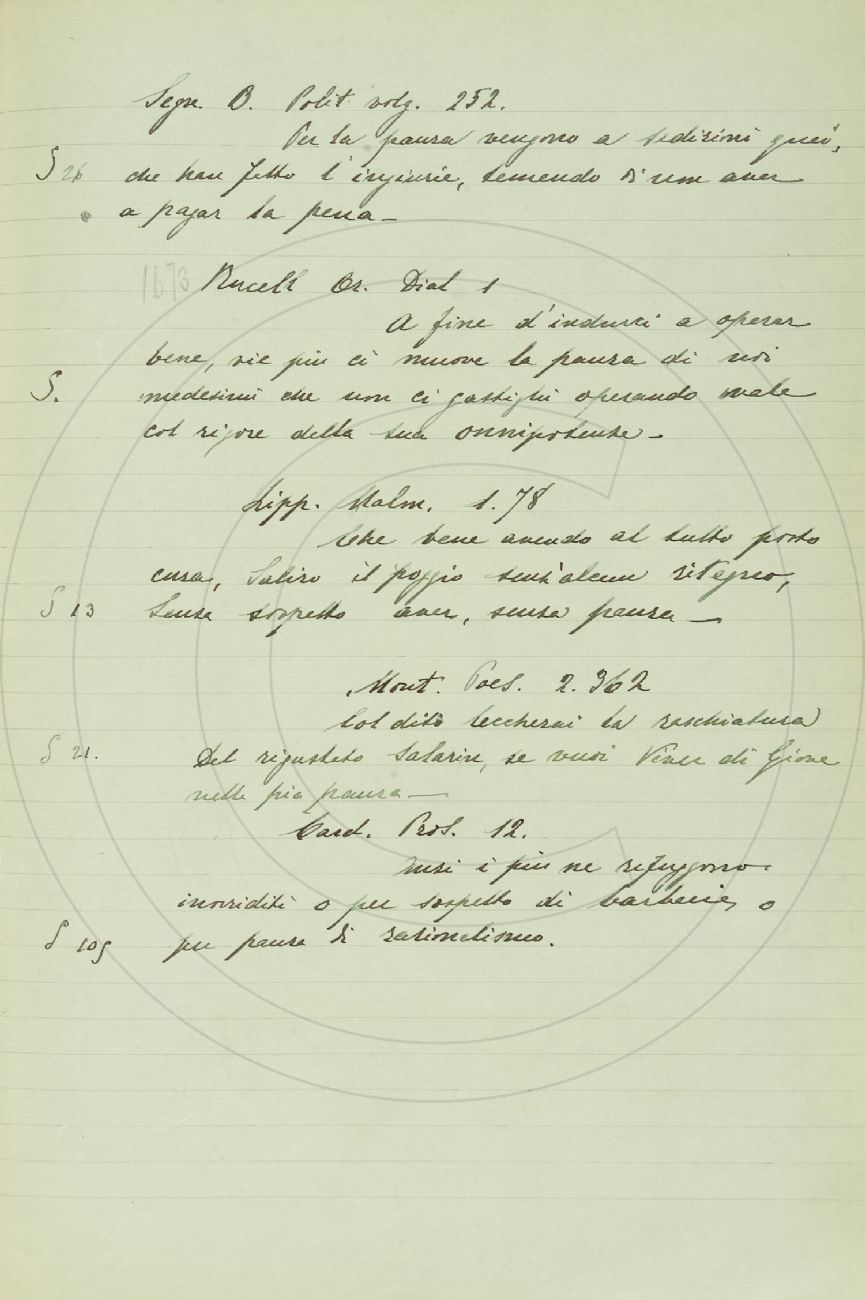 Segn. B. Polit. volg. 252.
Per la paura vengono a sedizioni quei,
§ 26 che han fatto l'ingiurie, temendo di non aver
a pagar la pena —
1673 Rucell Or. Dial 1
A fine d'indurci a operar
bene, vie più ci muove la paura di noi
§. medesimi che non ci gastighi operando male
col rigore della sua onnipotenza —
Lipp. Malm. 1.78
Che bene avendo al tutto posto
cura, Saliro il poggio senz'alcun ritegno,
§ 13 Senza sospetto aver, senza paura —
Mont. Poes. 2. 362
Col dito leccherai la raschiatura
§ 21. Del rigustato Salarin, se vuoi Viver di Giove
nella pia paura —
Card. Pros. 12.
Anzi i più ne rifuggono
inorriditi o per sospetto di barbarie, o
§ 105 per paura di razionalismo.